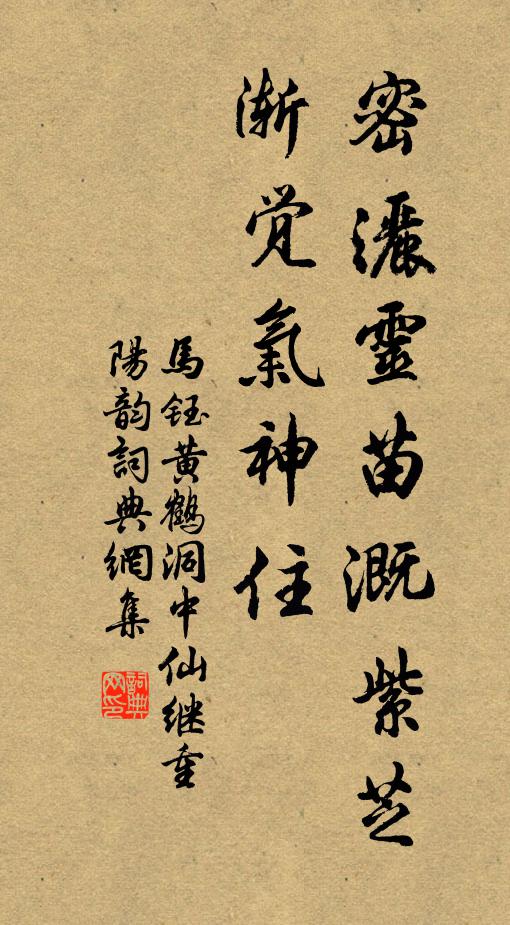 密灑靈苗溉紫芝
渐觉氣神住
馬鈺黄鶴洞中仙继重
陽韵詞典網集
詞典
网印